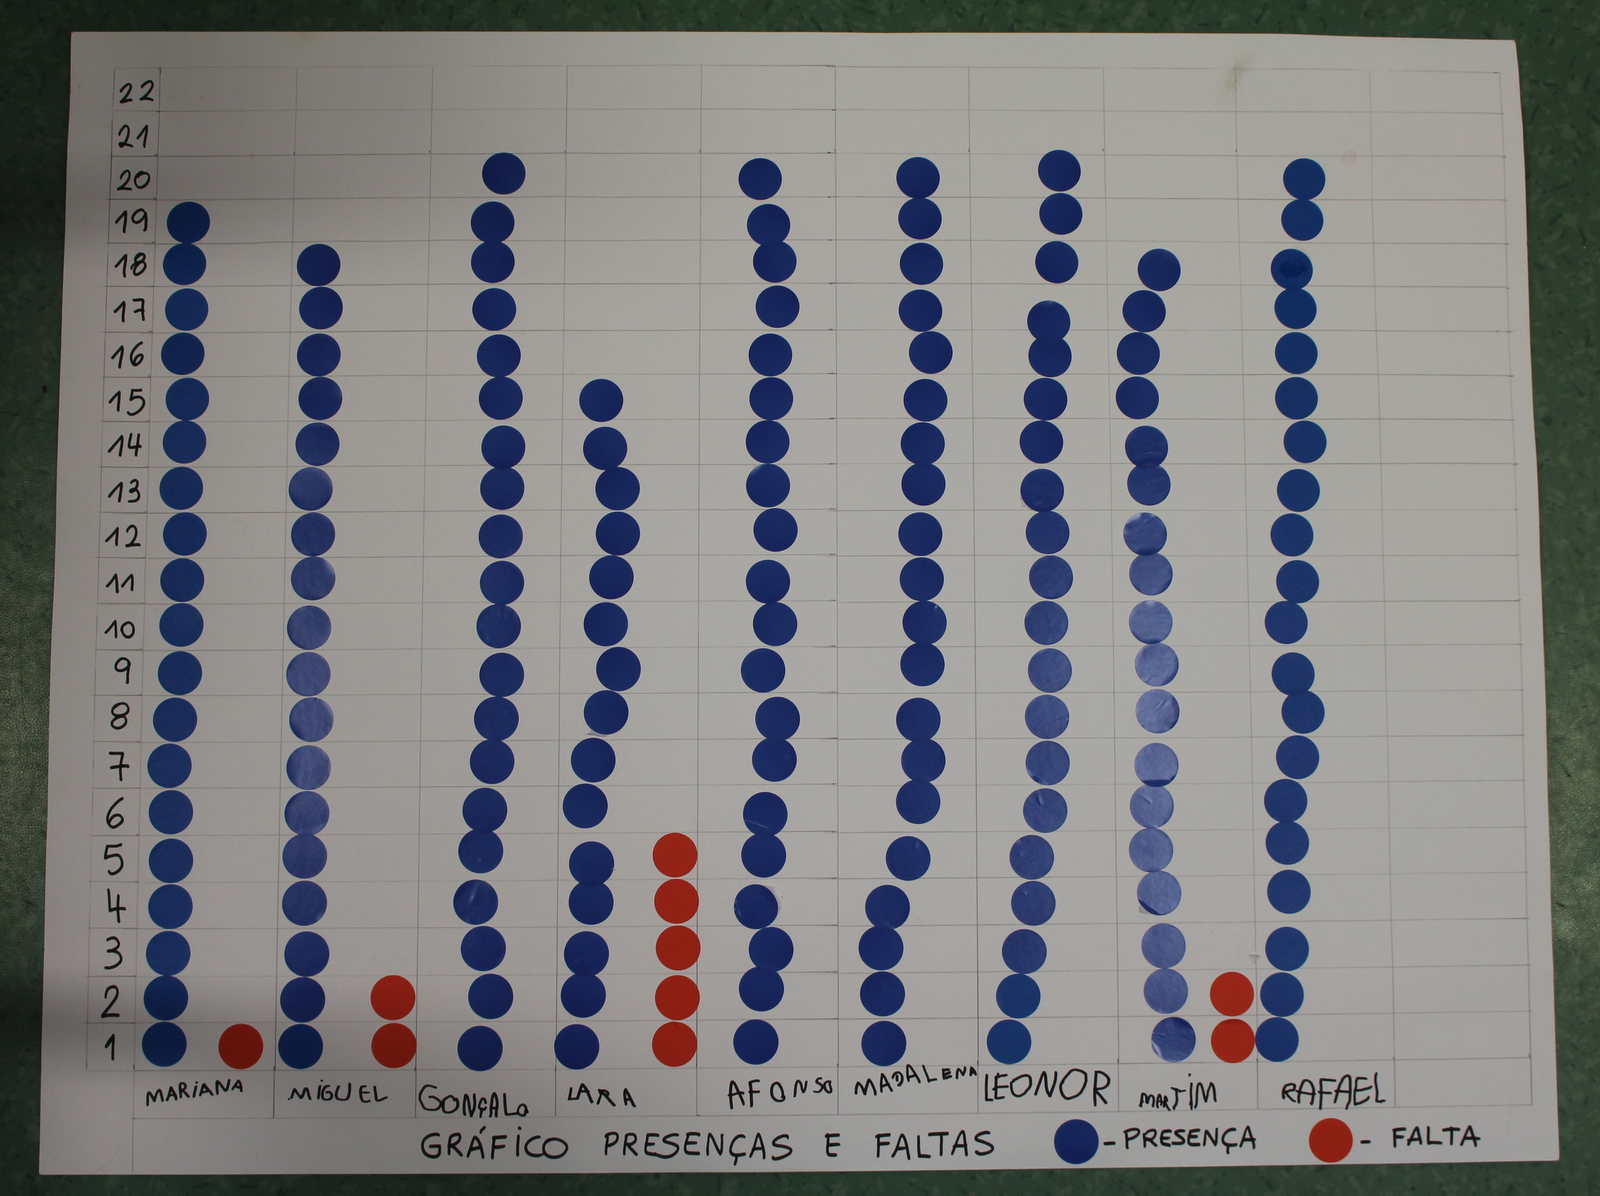 22
21
20
19
18
17
16
15
14
13
12
11
10
9
8
7
6
5
4
3
2
1
MARiANA MiGUEL GONÇALO LARA AFONSO MADALENA LEONOR MARTiM RAFAEL
GRÁFiCO PRESENÇAS E FALTAS - PRESENÇA - FALTA